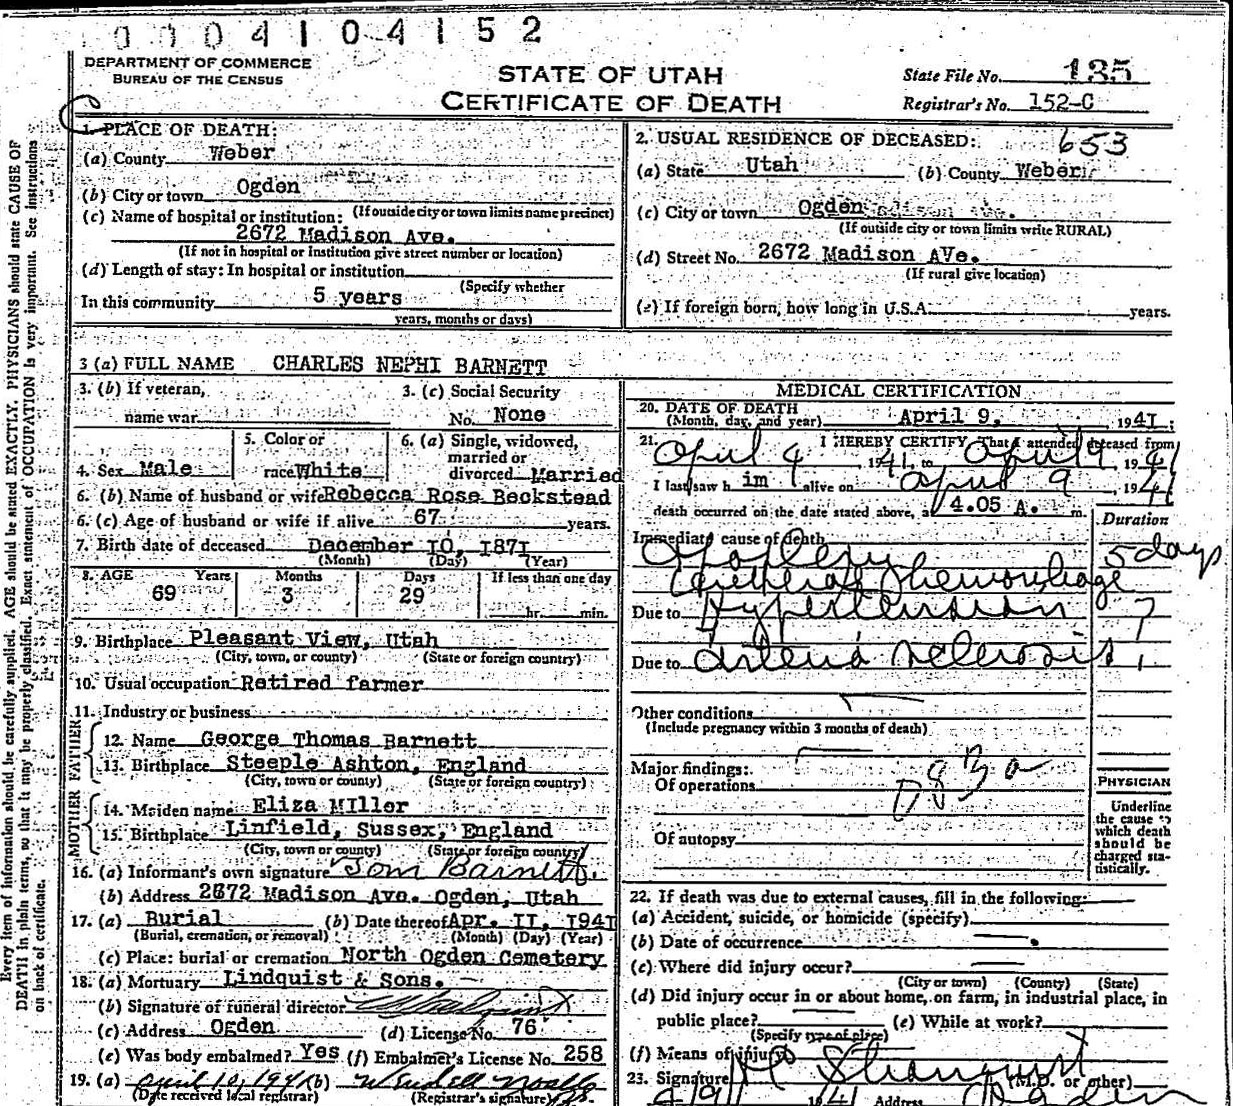 0004104152
DEPARTMENT OF COMMERCE
BUREAU OF THE CENSUS
STATE OF UTAH
CERTIFICATE OF DEATH
State File No. 135
Registrar's No. 152-C
1. PLACE OF DEATH:
(a) County Weber
(b) City or town Ogden
(If outside city or town limits name precinct)
(c) Name of hospital or institution:
2672 Madison Ave.
(If not in hospital or institution give street number or location)
(d) Length of stay: In hospital or institution
(Specify whether
In this community 5 years
years, months or days)
2. USUAL RESIDENCE OF DECEASED: 653
(a) State Utah (b) County Weber
(c) City or town Ogden
(If outside city or town limits write RURAL)
(d) Street No. 2672 Madison AVe.
(If rural give location)
(e) If foreign born, how long in U.S.A. years.
3 (a) FULL NAME CHARLES NEPHI BARNETT
3. (b) If veteran,
name war
3. (c) Social Security
No. None
4. Sex Male
5. Color or
race White
6. (a) Single, widowed,
married or
divorced Married
6. (b) Name of husband or wife Rebecca Rose Beckstead
6. (c) Age of husband or wife if alive 67 years.
7. Birth date of deceased December 10, 1871
(Month) (Day) (Year)
8. AGE Years Months Days If less than one day
69 3 29 hr. min.
9. Birthplace Pleasant View, Utah
(City, town, or county) (State or foreign country)
10. Usual occupation Retired farmer
11. Industry or business
FATHER
12. Name George Thomas Barnett
13. Birthplace Steeple Ashton, England
(City, town or county) (State or foreign country)
MOTHER
14. Maiden name Eliza MIller
15. Birthplace Linfield, Sussex, England
(City, town or county) (State or foreign country)
16. (a) Informant's own signature Tom Barnett.
(b) Address 2672 Madison Ave. Ogden, Utah
17. (a) Burial (b) Date thereof Apr. II, I94I
(Burial, cremation, or removal) (Month) (Day) (Year)
(c) Place: burial or cremation North Ogden Cemetery
18. (a) Mortuary Lindquist & Sons.
(b) Signature of funeral director
(c) Address Ogden (d) License No. 76
(e) Was body embalmed? Yes (f) Embalmer's License No. 258
19. (a) April 10, 1941 (b) Wendell
(Date received local registrar) (Registrar's signature)
MEDICAL CERTIFICATION
20. DATE OF DEATH
(Month, day, and year) April 9, 1941
21. I HEREBY CERTIFY That I attended deceased from
April 4 1941, to April 9 1941
I last saw him alive on April 9, 1941
death occurred on the date stated above, at 4.05 A. m.
Duration
Immediate cause of death
Apoplexy 5 days
Cerebral hemorrhage
Due to Hypertension ?
Due to Arterio sclerosis
Other conditions
(Include pregnancy within 3 months of death)
Major findings:
Of operations
83a
Of autopsy
PHYSICIAN
Underline
the cause to
which death
should be
charged sta-
tistically.
22. If death was due to external causes, fill in the following:
(a) Accident, suicide, or homicide (specify)
(b) Date of occurrence
(c) Where did injury occur?
(City or town) (County) (State)
(d) Did injury occur in or about home, on farm, in industrial place, in
public place? (e) While at work?
(Specify type of place)
(f) Means of injury
23. Signature (M.D. or other)
4/9/ 1941 Address Ogden
Every item of Information should be carefully supplied. AGE should be stated EXACTLY. PHYSICIANS should state CAUSE OF
DEATH in plain terms, so that it may be properly classified. Exact statement of OCCUPATION is very important. See instructions
on back of certificate.